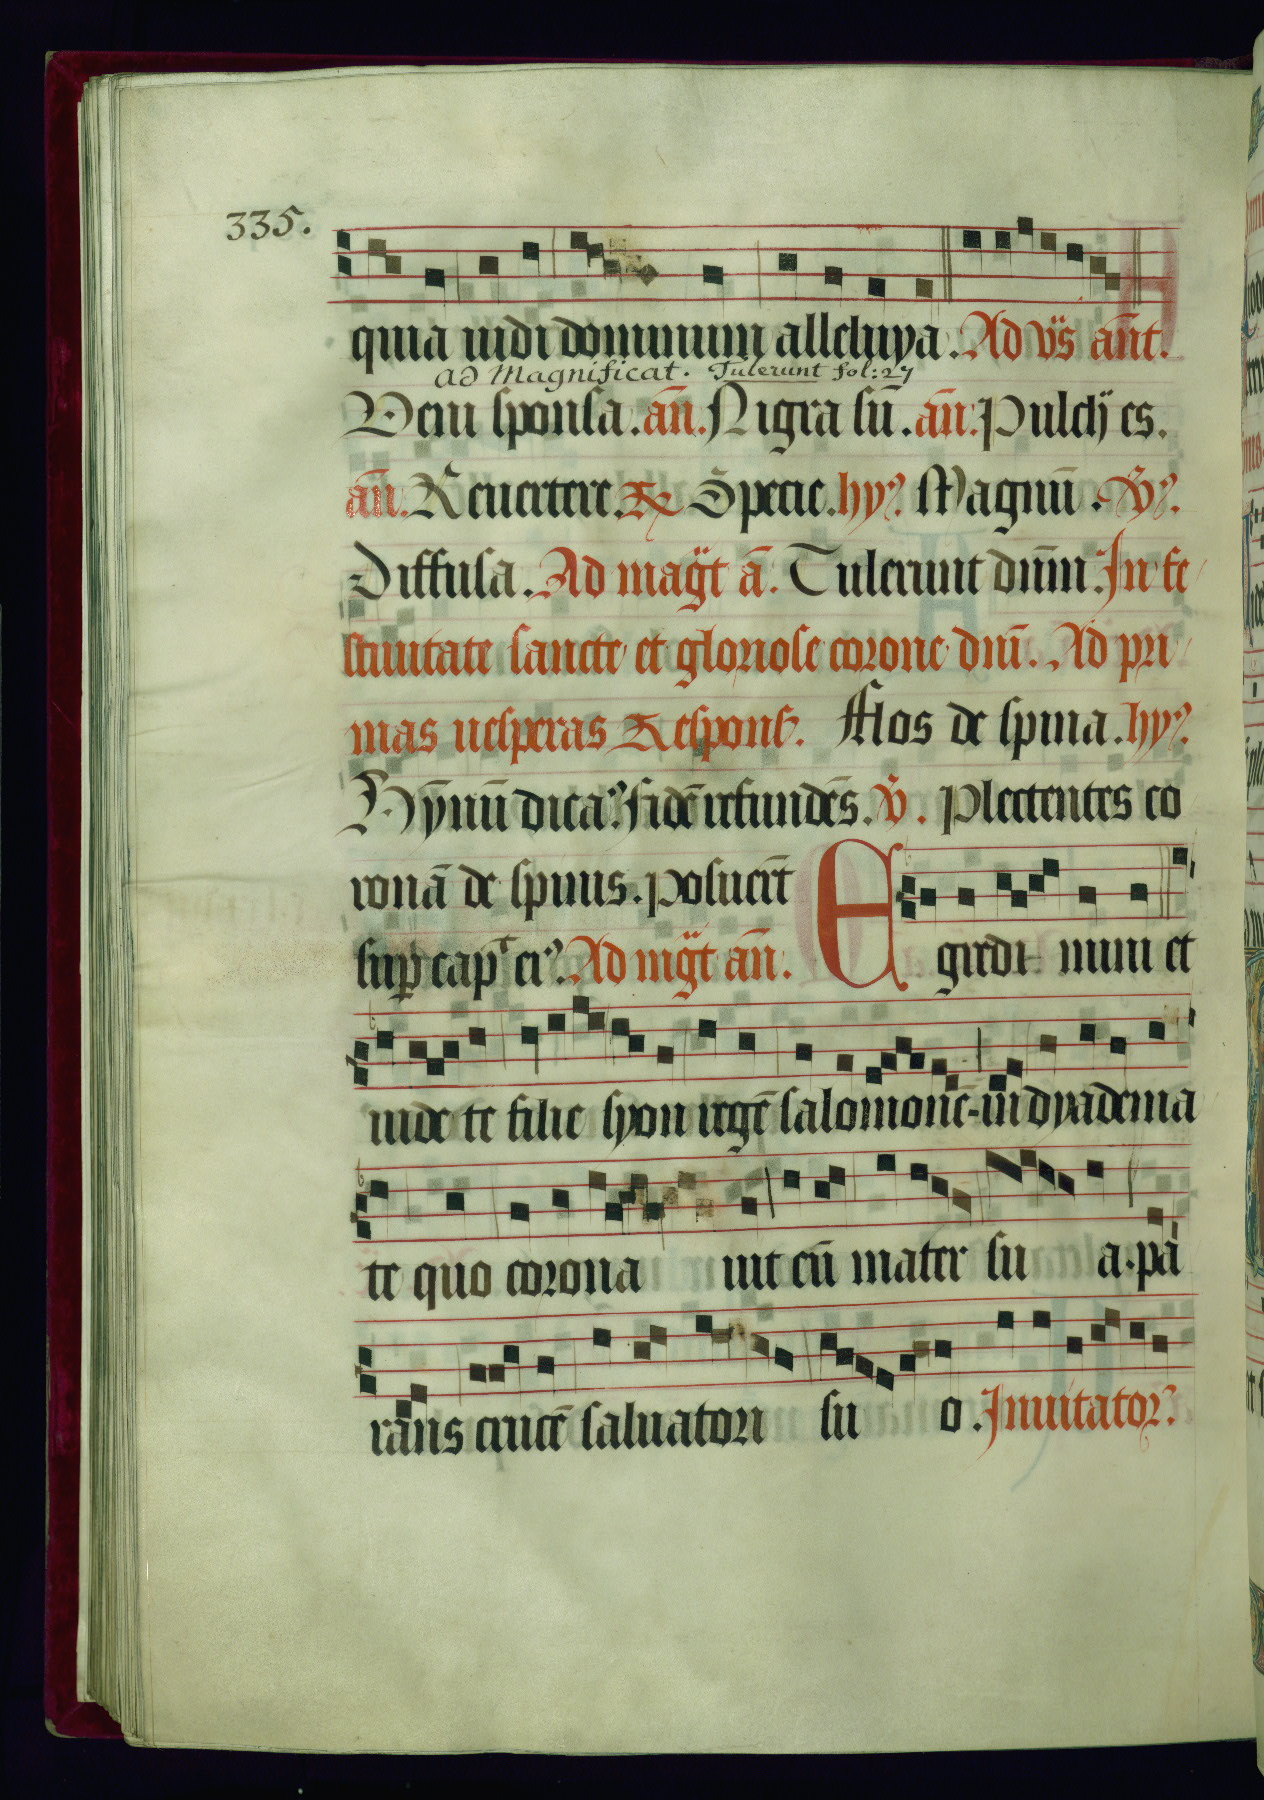 335.
quia uidi dominum alleluya. Ad vs̈ ant̄.
ad Magnificat. Tulerunt fol: 27
Veni sponsa. an̄. Nigra sū. an̄. Pulch̄ es.
an̄. Reuertere. R Specie. hyꝰ. Magnū. Vꝰ.
Diffusa. Ad mag̈t ā. Tulerunt dn̄m. In fe
stiuitate sancte et gloriose corone dn̄i. Ad pri
mas uesperas Respons. Flos de spina. hyꝰ.
Hȳnū dicaꝰ. fidē refundēs. v̄. Plectentes co
ronā de spinis. posuer̄t
suꝑ capᵗ eiꝰ. Ad mg̈t an̄.
Egredimini et
uide te filie syon regē salomonē in dyadema
te quo corona uit eū mater su a. pā
rans crucē saluatori su o. Inuitatorꝰ.